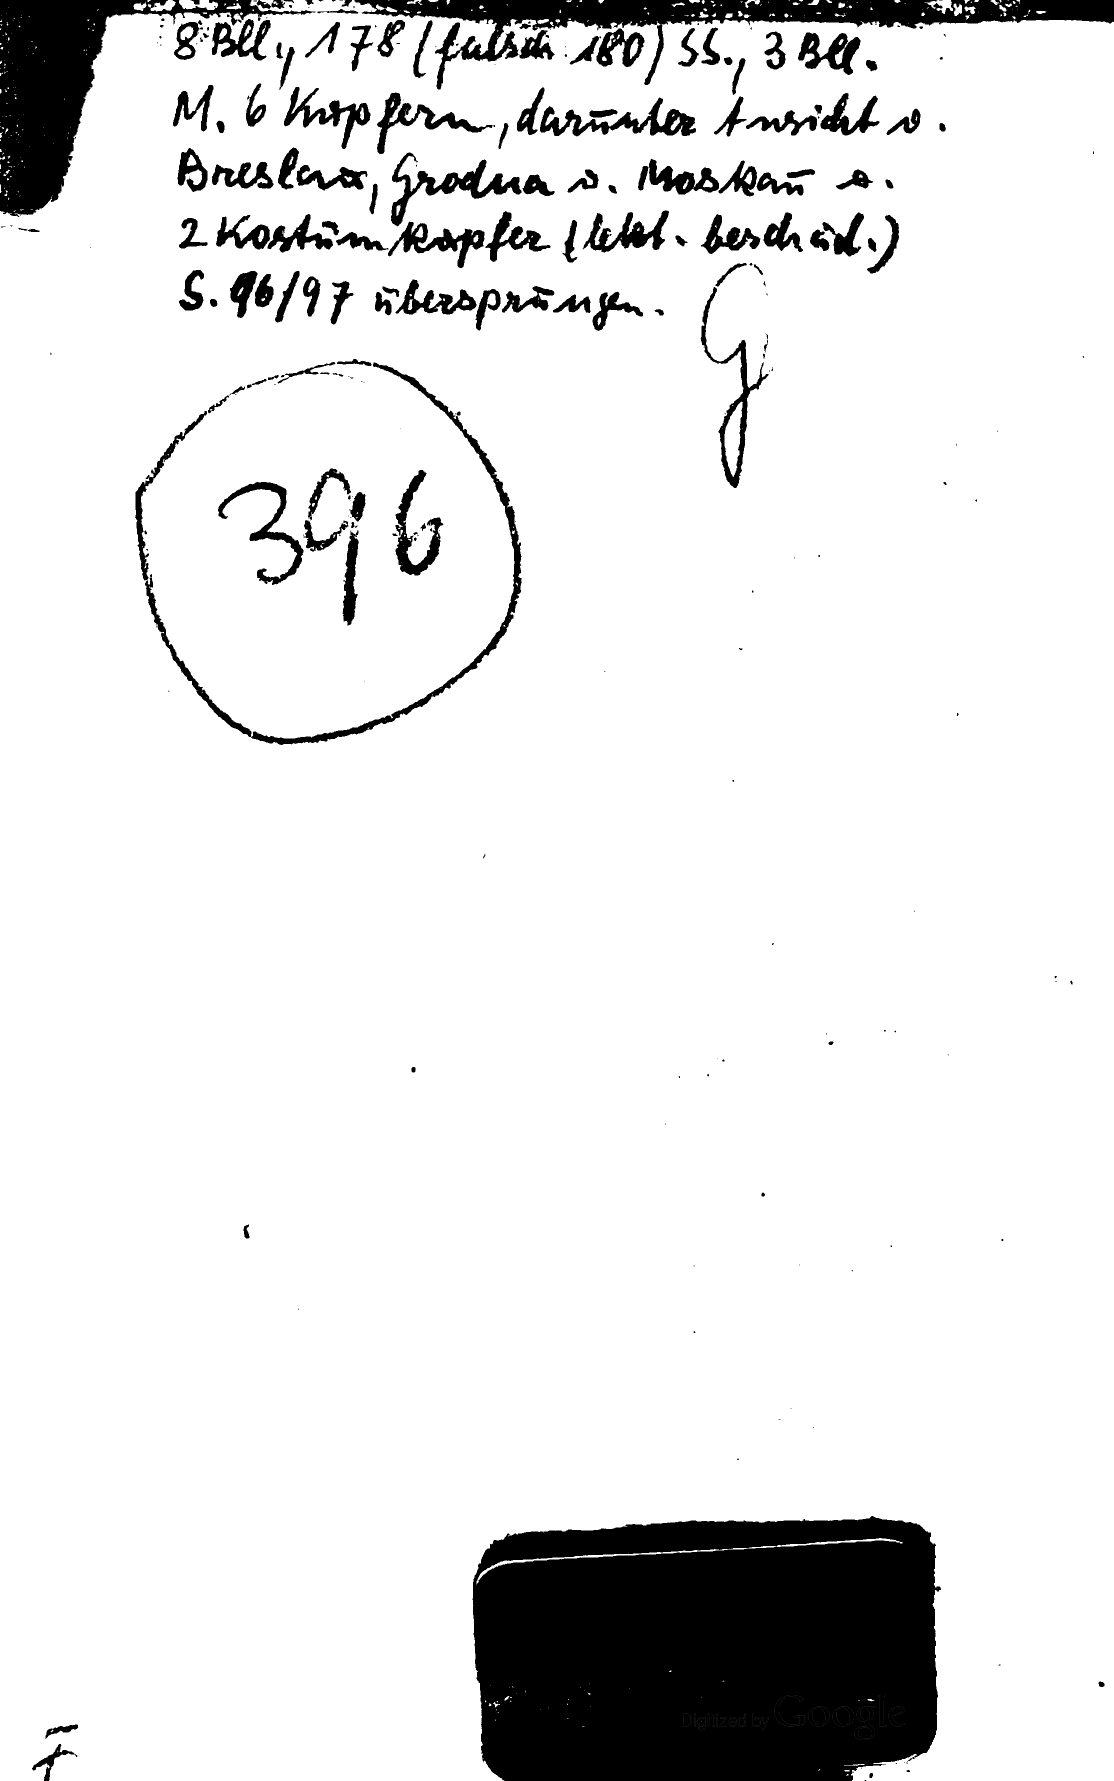 8 Bll., 178 (falsch 180) SS., 3 Bll.
M. 6 Kupfern, darunter Ansicht v.
Breslau, Grodna v. Moskau u.
2 Kostümkupfer (letzt. beschäd.)
S. 96/97 übersprungen.
G
396
Digitized by Google